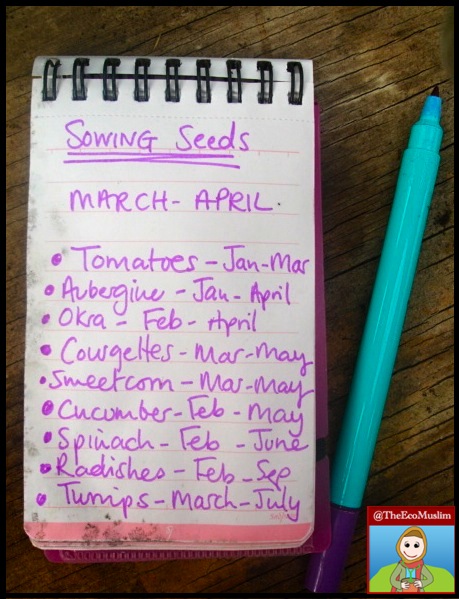 SOWING Seeds
MARCH - APRIL.
• Tomatoes - Jan-Mar
• Aubergine - Jan - April
• Okra - Feb - April
• Courgettes - Mar-May
• Sweetcorn - Mar-May
• Cucumber - Feb - May
• Spinach - Feb - June
• Radishes - Feb - Sep
• Turnips - March - July
@TheEcoMuslim